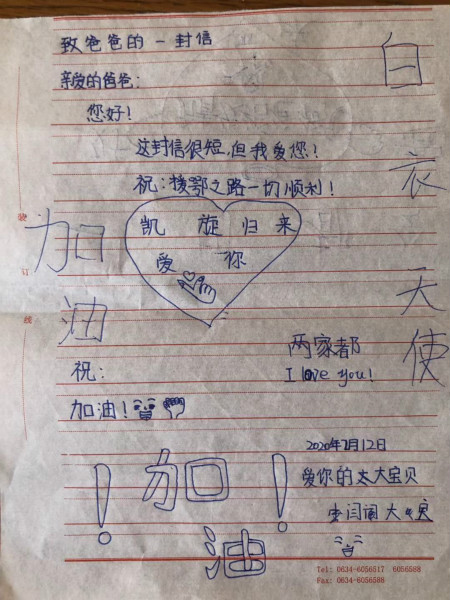 致爸爸的一封信
亲爱的爸爸:
您好!
这封信很短,但我爱您!
祝:援鄂之路一切顺利!
白衣天使
加油
凯旋归来
爱你
两家都
I love you!
祝:
加油!
2020年2月12日
爱你的太大宝贝
! 加油 !
装
订
线
Tel: 0634-6056517 6056588
Fax: 0634-6056588